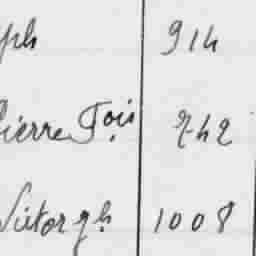 ph 914
Pierre Fois 742
Victor gh 1008